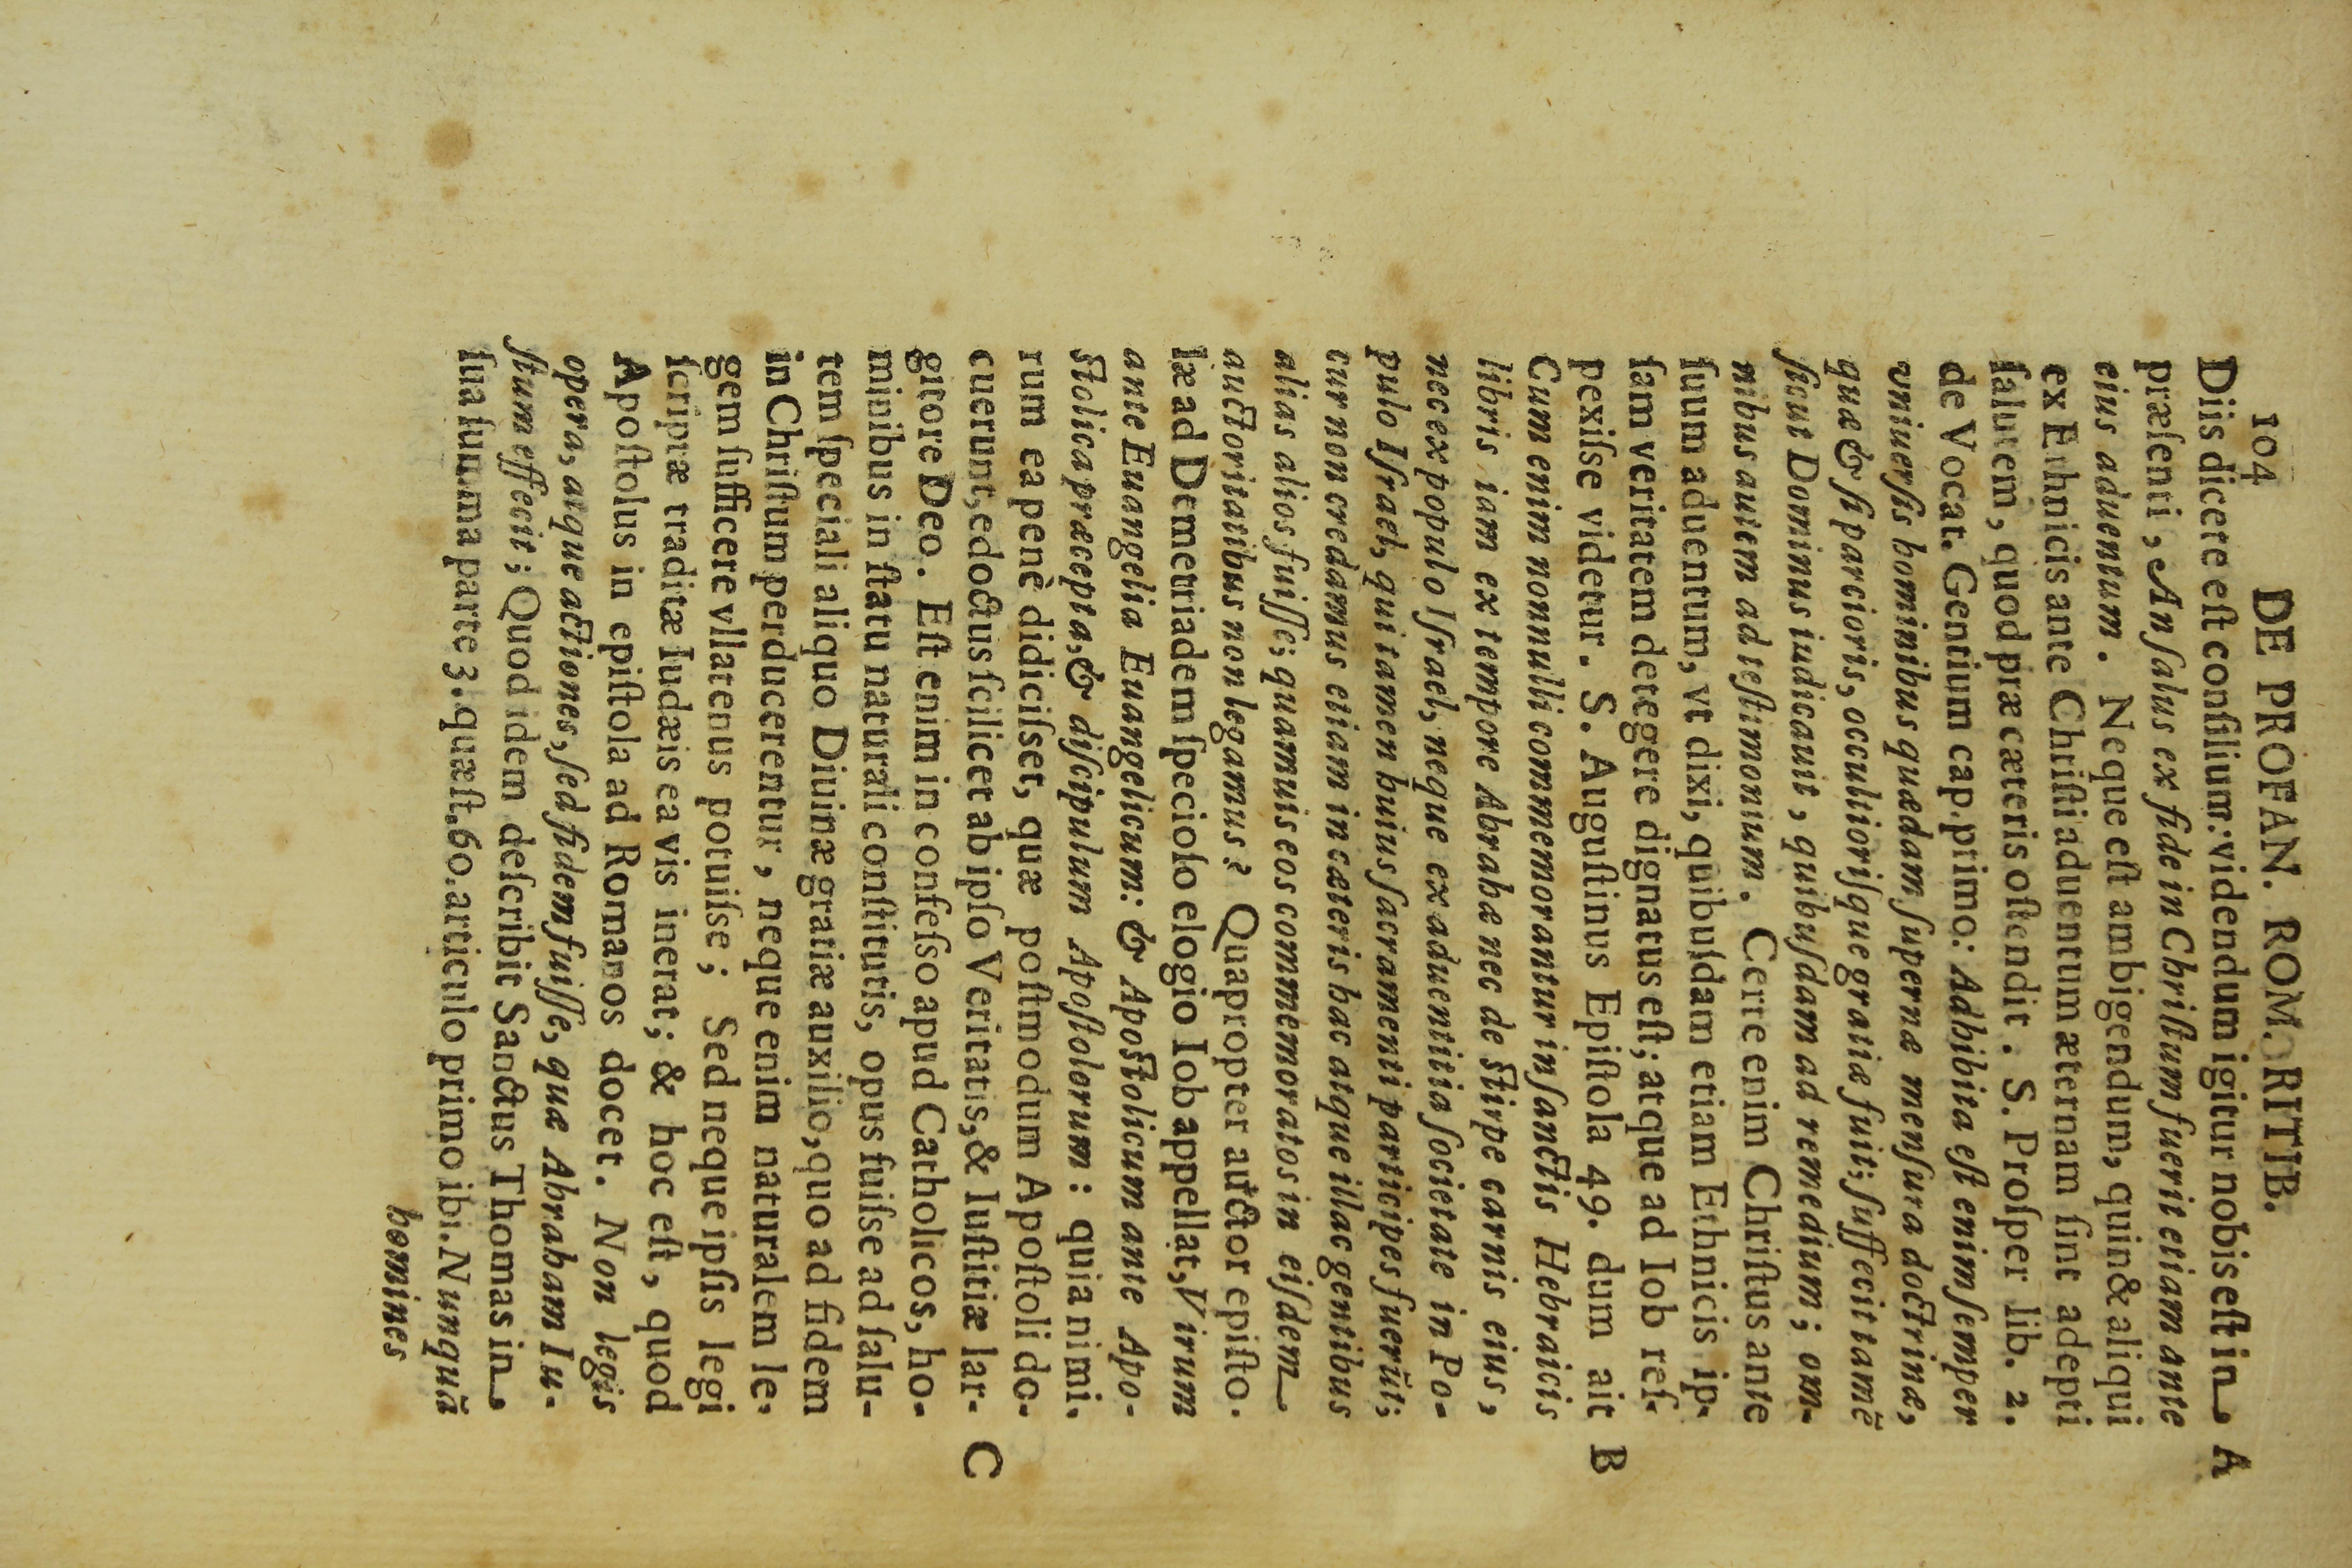 104 DE PROFAN. ROM. RITIB.
Diis dicere eſt conſilium: videndum igitur nobis eſt in A
præſenti, An ſalus ex fide in Chriſtum fuerit etiam ante
eius aduentum. Neque eſt ambigendum, quin & aliqui
ex Ethnicis ante Chriſti aduentum æternam ſint adepti
ſalutem, quod præ cæteris oſtendit. S. Proſper lib. 2.
de Vocat. Gentium cap. primo: Adhibita eſt enim ſemper
vniuerſis hominibus quædam ſupernæ menſura doctrinæ,
quæ & ſi parcioris, occultioriſque gratiæ fuit; ſuffecit tamẽ
ſicut Dominus iudicauit, quibuſdam ad remedium; om-
nibus autem ad teſtimonium. Certe enim Chriſtus ante
ſuum aduentum, vt dixi, quibuſdam etiam Ethnicis ip-
ſam veritatem detegere dignatus eſt; atque ad Iob reſ-
pexiſse videtur. S. Auguſtinus Epiſtola 49. dum ait B
Cum enim nonnulli commemorantur in ſanctis Hebraicis
libris iam ex tempore Abrahæ nec de ſtirpe carnis eius,
nec ex populo Iſrael, neque ex aduentitia ſocietate in Po-
pulo Iſrael, qui tamen huius ſacramenti participes fuerũt;
cur non credamus etiam in cæteris hac atque illac gentibus
alias alios fuiſſe; quamuis eos commemoratos in eiſdem
auctoritatibus non legamus? Quapropter auctor epiſto-
læ ad Demetriadem ſpecioſo elogio Iob appellat, Virum
ante Euangelia Euangelicum: & Apoſtolicum ante Apo-
ſtolica præcepta, & diſcipulum Apoſtolorum: quia nimi-
rum ea penè didiciſset, quæ poſtmodum Apoſtoli do-
cuerunt, edoctus ſcilicet ab ipſo Veritatis, & Iuſtitiæ lar- C
gitore Deo. Eſt enim in confeſso apud Catholicos, ho-
minibus in ſtatu naturali conſtitutis, opus fuiſse ad ſalu-
tem ſpeciali aliquo Diuinæ gratiæ auxilio, quo ad fidem
in Chriſtum perducerentur, neque enim naturalem le-
gem ſufficere vllatenus potuiſse; Sed neque ipſis legi
ſcriptæ traditæ Iudæis ea vis inerat; & hoc eſt, quod
Apoſtolus in epiſtola ad Romanos docet. Non legis
opera, atque actiones, ſed fidem fuiſſe, quæ Abraham Iu-
ſtum effecit; Quod idem deſcribit Sanctus Thomas in
ſua ſumma parte 3. quæſt. 60. articulo primo ibi. Nunquã
homines